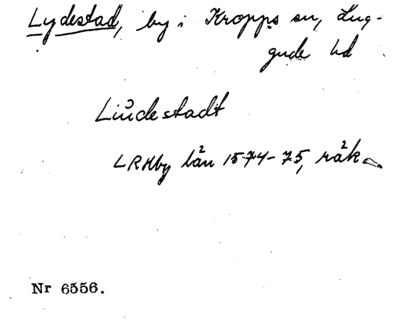 Lydestad, by i Kropps sn, Lug-
gude hd
Liudestadt
LRHby län 1574-75, räk
Nr 6556.